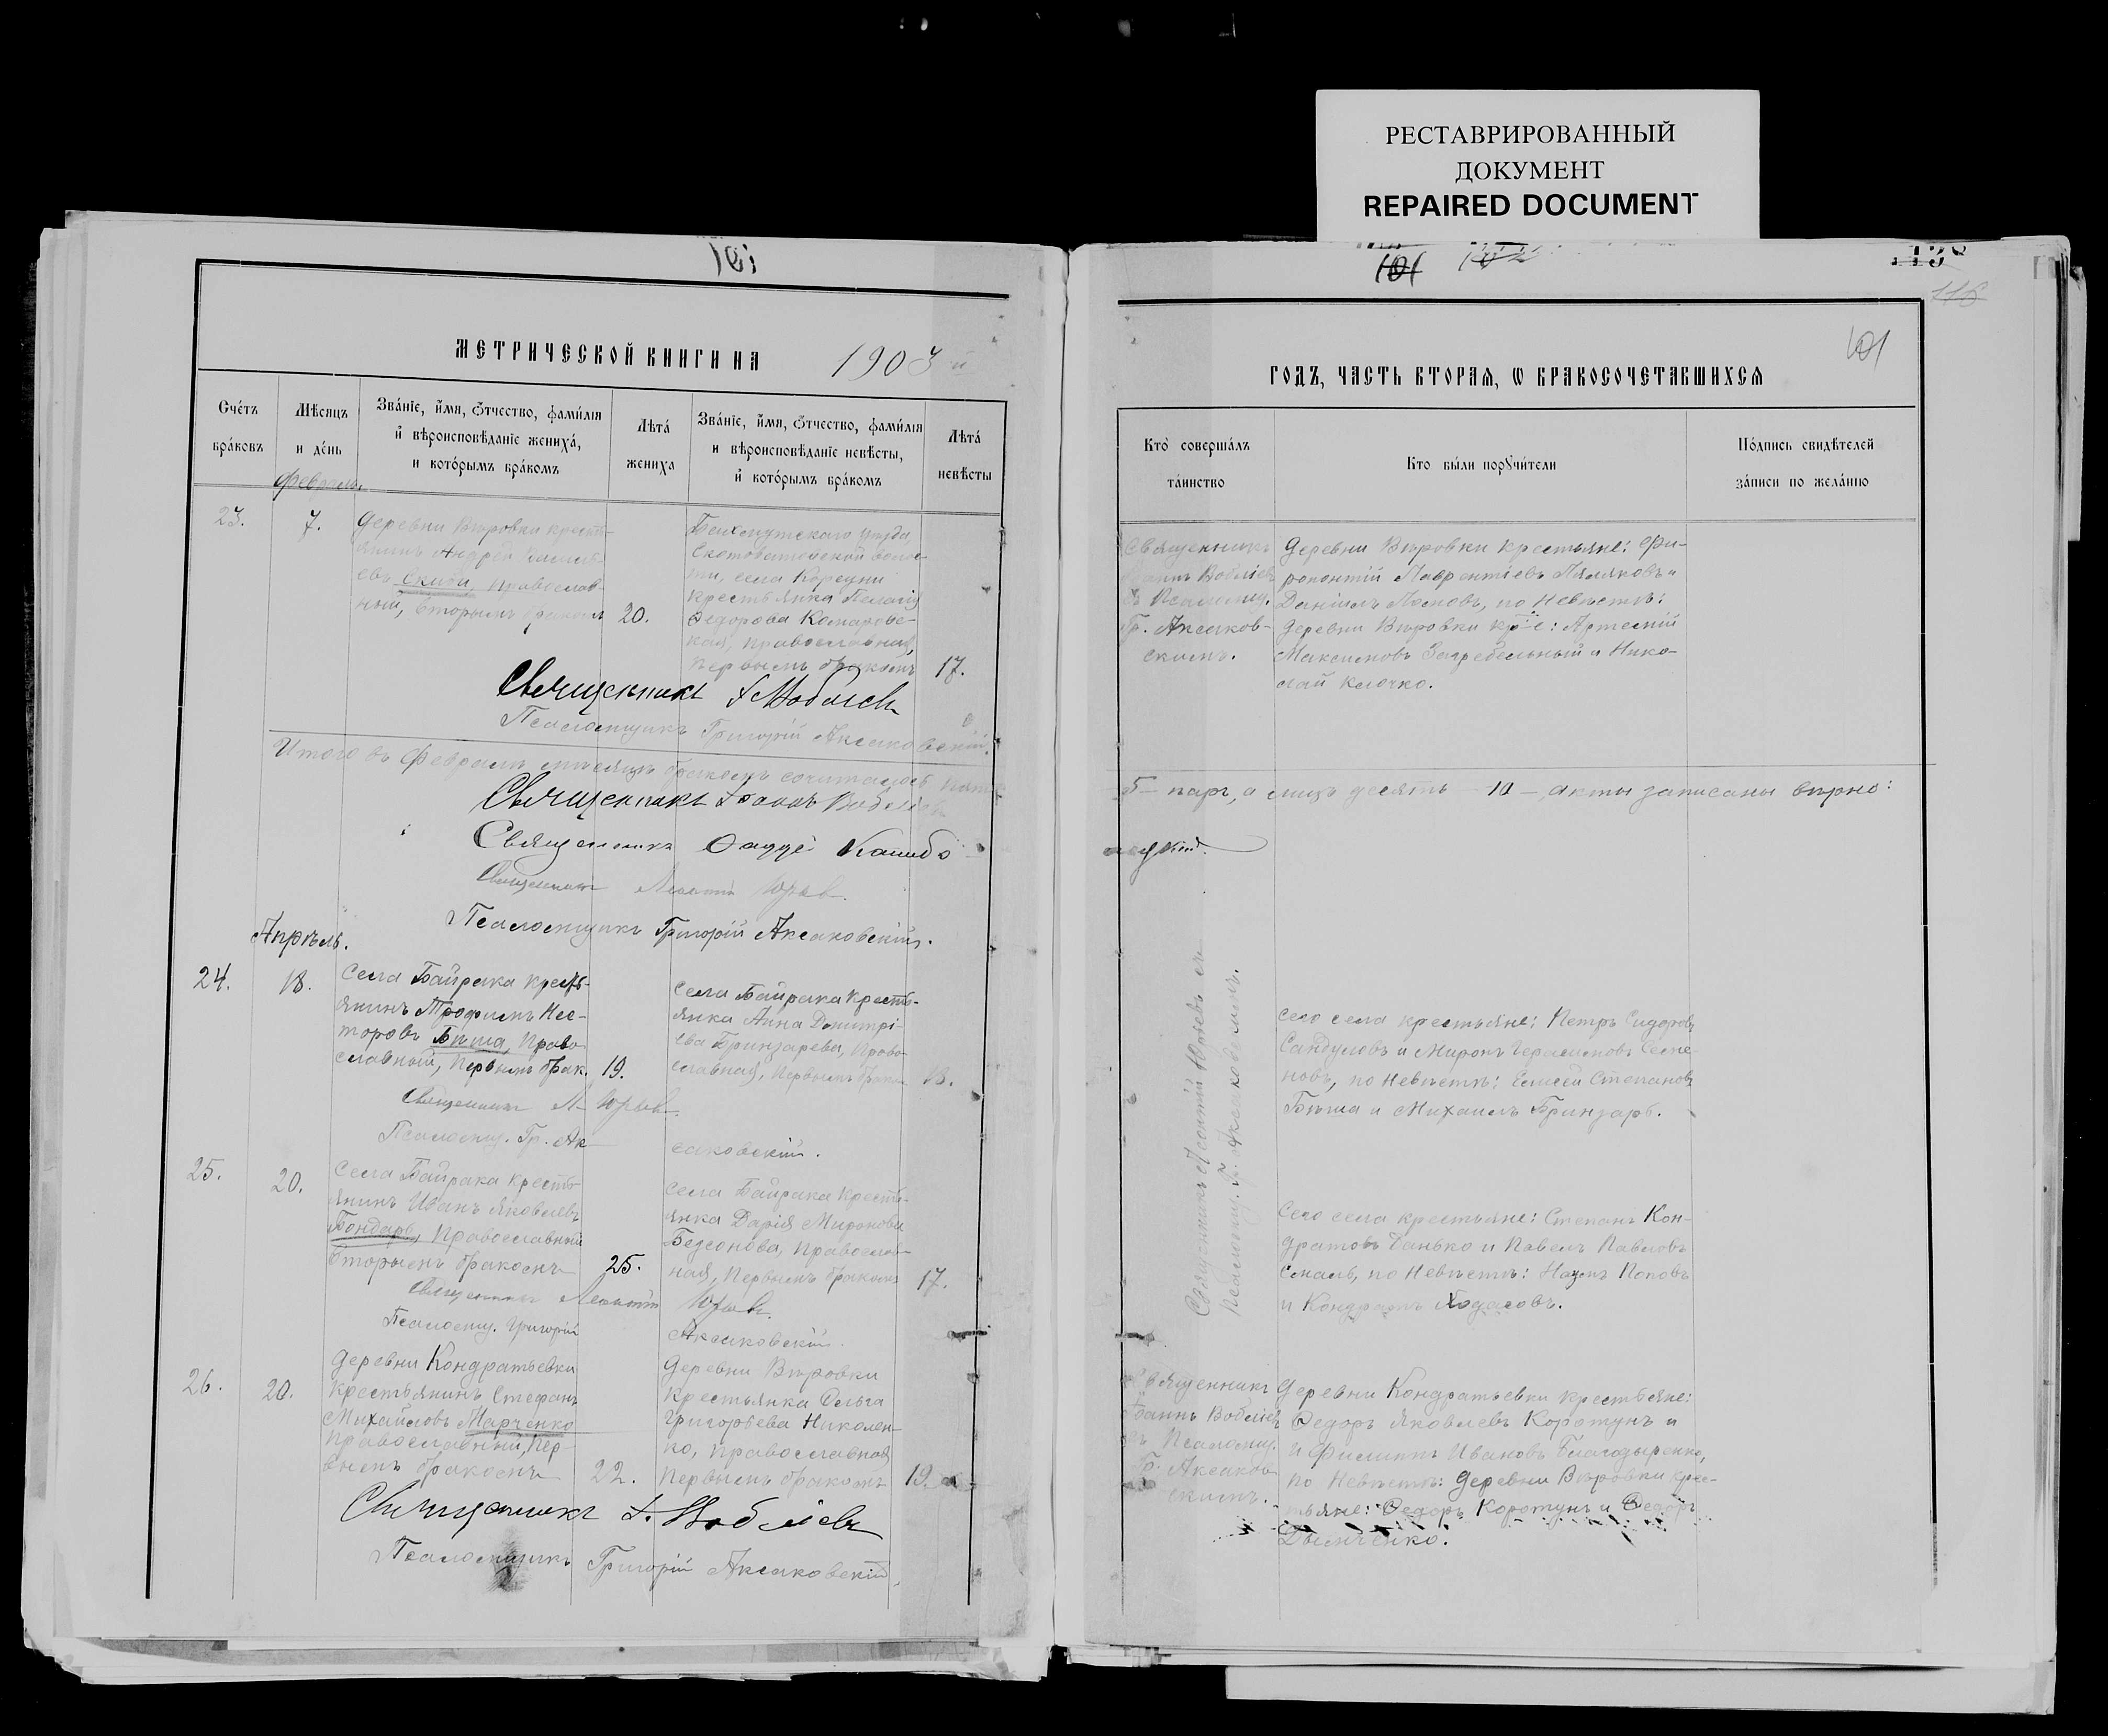 РЕСТАВРИРОВАННЫЙ
ДОКУМЕНТ
REPAIRED DOCUMENT
101
МЕТРИЧЕСКОЙ КНИГИ НА 1903 й
Сче́тъ бра́ковъ
Мѣсяцъ и де́нь
Зва́нїе, и́мя, ѻ́тчество, фами́лїя
и҆ вѣроисповѣ́данїе жениха́,
и кото́рымъ бра́комъ
Лѣта́ жениха
Зва́нїе, и́мя, ѻ́тчество, фами́лїя
и вѣроисповѣ́данїе невѣ́сты,
и҆ кото́рымъ бра́комъ
Лѣта́ невѣ́сты
Февраль.
23.
7.
Деревни Вѣровки кресть-
янинъ Андрей Василь-
евъ Скиба, православ-
ный, вторымъ бракомъ
20.
Бахмутскаго уѣзда
Скотоватовской волос-
ти, села Корсуни
крестьянка Пелагія
Ѳедорова Комаровс-
кая, православная,
первымъ бракомъ
17.
Священникъ І. Воблiевъ
Псаломщикъ Григорій Аксаковскій.
Итого въ Февралѣ мѣсяцѣ бракомъ сочиталось пять
Священникъ Іоаннъ Воблiевъ
Священникъ Ѳаддей
Священникъ Леонтій Юрьев.
Псаломщикъ Григорій Аксаковскій.
Апрѣль.
24.
18.
Села Байрака кресть-
янинъ Трофимъ Нес-
торовъ Бѣша, право-
славный, первымъ брак.
19.
Села Байрака кресть-
янка Анна Димитрі-
ева Бринзарева, право-
славная, первымъ браком
18.
Священникъ Л. Юрьев.
Псаломщ. Гр. Ак
саковскій.
25.
20.
Села Байрака кресть-
янинъ Иванъ Яковлевъ
Бондарь, православный
вторымъ бракомъ
25.
Села Байрака кресть-
янка Дарія Миронова
Бедсонова, православ-
ная, первымъ бракомъ
17.
Священникъ Леонтій Юрьев.
Псаломщ. Григорій
Аксаковскій.
26.
20.
Деревни Кондратьевки
крестьянинъ Стефанъ
Михайловъ Марченко
православный, пер-
вымъ бракомъ
22.
Деревни Вѣровки
крестьянка Ольга
Григорьева Николен-
ко, православная
первымъ бракомъ
19.
Священникъ І. Воблiевъ
Псаломщикъ Григорій Аксаковскій.
101
102
138
116
101
ГОДЪ, ЧАСТЬ ВТОРАЯ, Ѡ БРАКОСОЧЕТАВШИХСЯ
Кто̀ соверша́лъ та́инство
Кто бы́ли порꙋчи́тели
По́дпись свидѣ́телей
за́писи по жела́нїю
Священникъ
Іоаннъ Воблiевъ
съ Псаломщ.
Гр. Аксаков-
скимъ.
Деревни Вѣровки крестьяне: Фи-
ропонтій Лаврентіевъ Поляковъ и
Даніилъ Поповъ, по невѣстѣ:
деревни Вѣровки кр-е: Артемій
Максимовъ Загребельный и Нико-
лай Клочко.
5 – паръ, а лицъ десять – 10 –, акты записаны вѣрно:
Священникъ Леонтій Юрьевъ съ
Псаломщ. Г. Аксаковскимъ.
Сего села крестьяне: Петръ Сидоровъ
Сандуловъ и Миронъ Герасимовъ Семе-
новъ, по невѣстѣ: Елисей Степановъ
Бѣша и Михаилъ Бринзарь.
Сего села крестьяне: Степанъ Кон-
дратовъ Танько и Павелъ Павловъ
Смаль, по невѣстѣ: Наумъ Поповъ
и Кондратъ Ходасовъ.
Священникъ
Іоаннъ Воблiевъ
съ Псаломщ.
Гр. Аксаков-
скимъ.
Деревни Кондратьевки крестьяне:
Ѳедоръ Яковлевъ Коротунъ и
и Филиппъ Ивановъ Благодыренко,
по невѣстѣ: деревни Вѣровки крес-
тьяне: Ѳедоръ Коротунъ и Ѳедоръ
Дымченко.